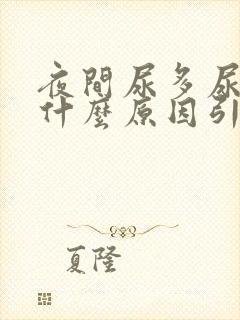 夜間尿多尿
什麼原因引
夏隆